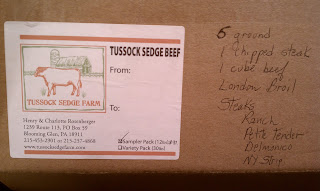 TUSSOCK SEDGE BEEF
From:
TUSSOCK SEDGE FARM
To:
Henry & Charlotte Rosenberger
1239 Route 113, PO Box 39
Blooming Glen, PA 18911
215-453-2901 or 215-237-4868
www.tussocksedgefarm.com
Sampler Pack (12
Variety Pack (20lbs)
6 ground
1 chipped steak
1 cube beef
London Broil
Steaks
Ranch
Petite Tender
Delmonico
NY Strip